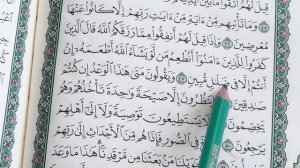 قِيلَ لَهُمُ ٱتَّقُوا۟
وَمَا تَأْتِيهِم مِّنْ ءَايَةٍ مِّنْ ءَايَٰتِ رَبِّهِمْ إِلَّا كَانُوا۟ عَنْهَا
مُعْرِضِينَ ٤٦ وَإِذَا قِيلَ لَهُمْ أَنفِقُوا۟ مِمَّا رَزَقَكُمُ ٱللَّهُ قَالَ ٱلَّذِينَ
كَفَرُوا۟ لِلَّذِينَ ءَامَنُوٓا۟ أَنُطْعِمُ مَن لَّوْ يَشَآءُ ٱللَّهُ أَطْعَمَهُۥٓ إِنْ
أَنتُمْ إِلَّا فِى ضَلَٰلٍ مُّبِينٍ ٤٧ وَيَقُولُونَ مَتَىٰ هَٰذَا ٱلْوَعْدُ إِن كُنتُمْ
صَٰدِقِينَ يَنظُرُونَ إِلَّا صَيْحَةً وَٰحِدَةً تَأْخُذُهُمْ وَهُمْ
يَخِصِّمُونَ يَسْتَطِيعُونَ تَوْصِيَةً وَلَآ إِلَىٰٓ أَهْلِهِمْ
يَرْجِعُونَ فِى ٱلصُّورِ فَإِذَا هُم مِّنَ ٱلْأَجْدَاثِ إِلَىٰ رَبِّهِمْ
يَٰوَيْلَنَا مَنۢ بَعَثَنَا مِن مَّرْقَدِنَا هَٰذَا مَا وَعَدَ